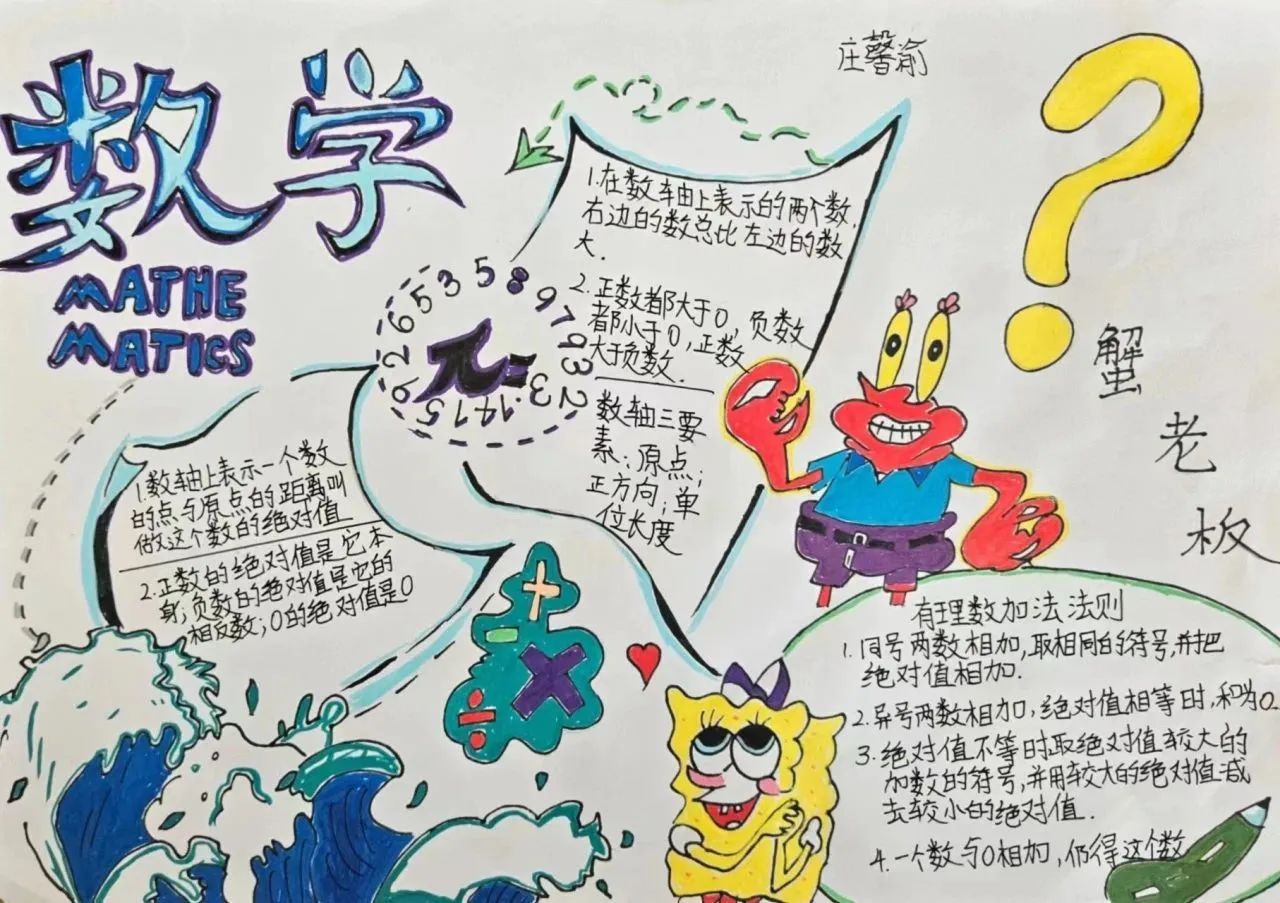 数学
MATHE
MATICS
庄馨渝
1.在数轴上表示的两个数,
右边的数总比左边的数
大.
2.正数都大于0,负数
都小于0,正数
大于负数.
数轴三要
素:原点;
正方向;单
位长度
π=3.1415926535897932
蟹老板
1.数轴上表示一个数
的点与原点的距离叫
做这个数的绝对值
2.正数的绝对值是它本
身;负数的绝对值是它的
相反数;0的绝对值是0
+
-
×
÷
?
有理数加法法则
1.同号两数相加,取相同的符号,并把
绝对值相加.
2.异号两数相加,绝对值相等时,和为0.
3.绝对值不等时取绝对值较大的
加数的符号,并用较大的绝对值减
去较小的绝对值.
4.一个数与0相加,仍得这个数